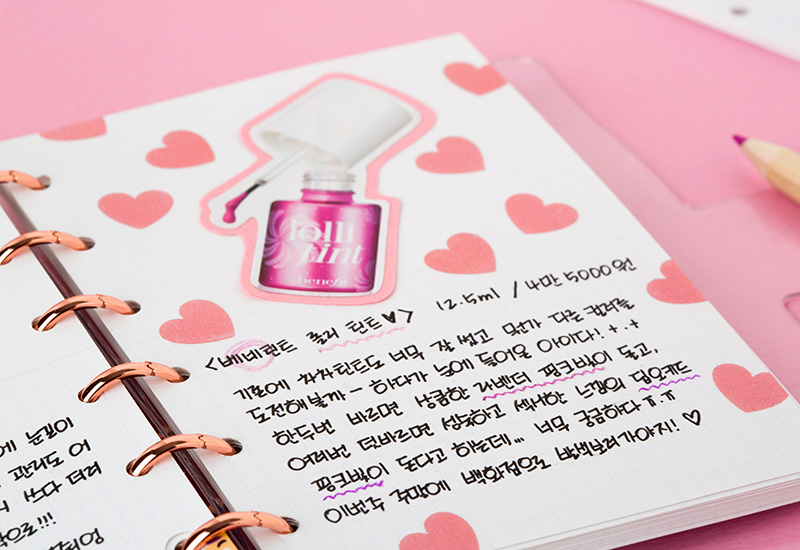 lolli
tint
benefit
12.5ml / 4만 5000원
<베네틴트 롤리 틴트♡>
기존에 차차틴트도 너무 잘 썼고 뭔가 다른 컬러를
도전해볼까~ 하다가 눈에 들어온 아이다! +.+
한두번 바르면 상큼한 라벤더 핑크빛이 돌고,
여러번 덧바르면 성숙하고 섹시한 느낌의 딥오키드
핑크빛이 돈다고 하는데... 너무 궁금하다 ㅠ.ㅠ
이번주 주말에 백화점으로 발색보러가야지! ♡
에 눈길이
관리도 어
니 쓰다 더러
으로!!!